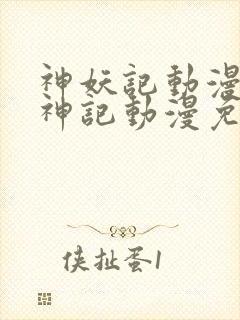 神妖記動漫
神記動漫免
侠扯蛋1